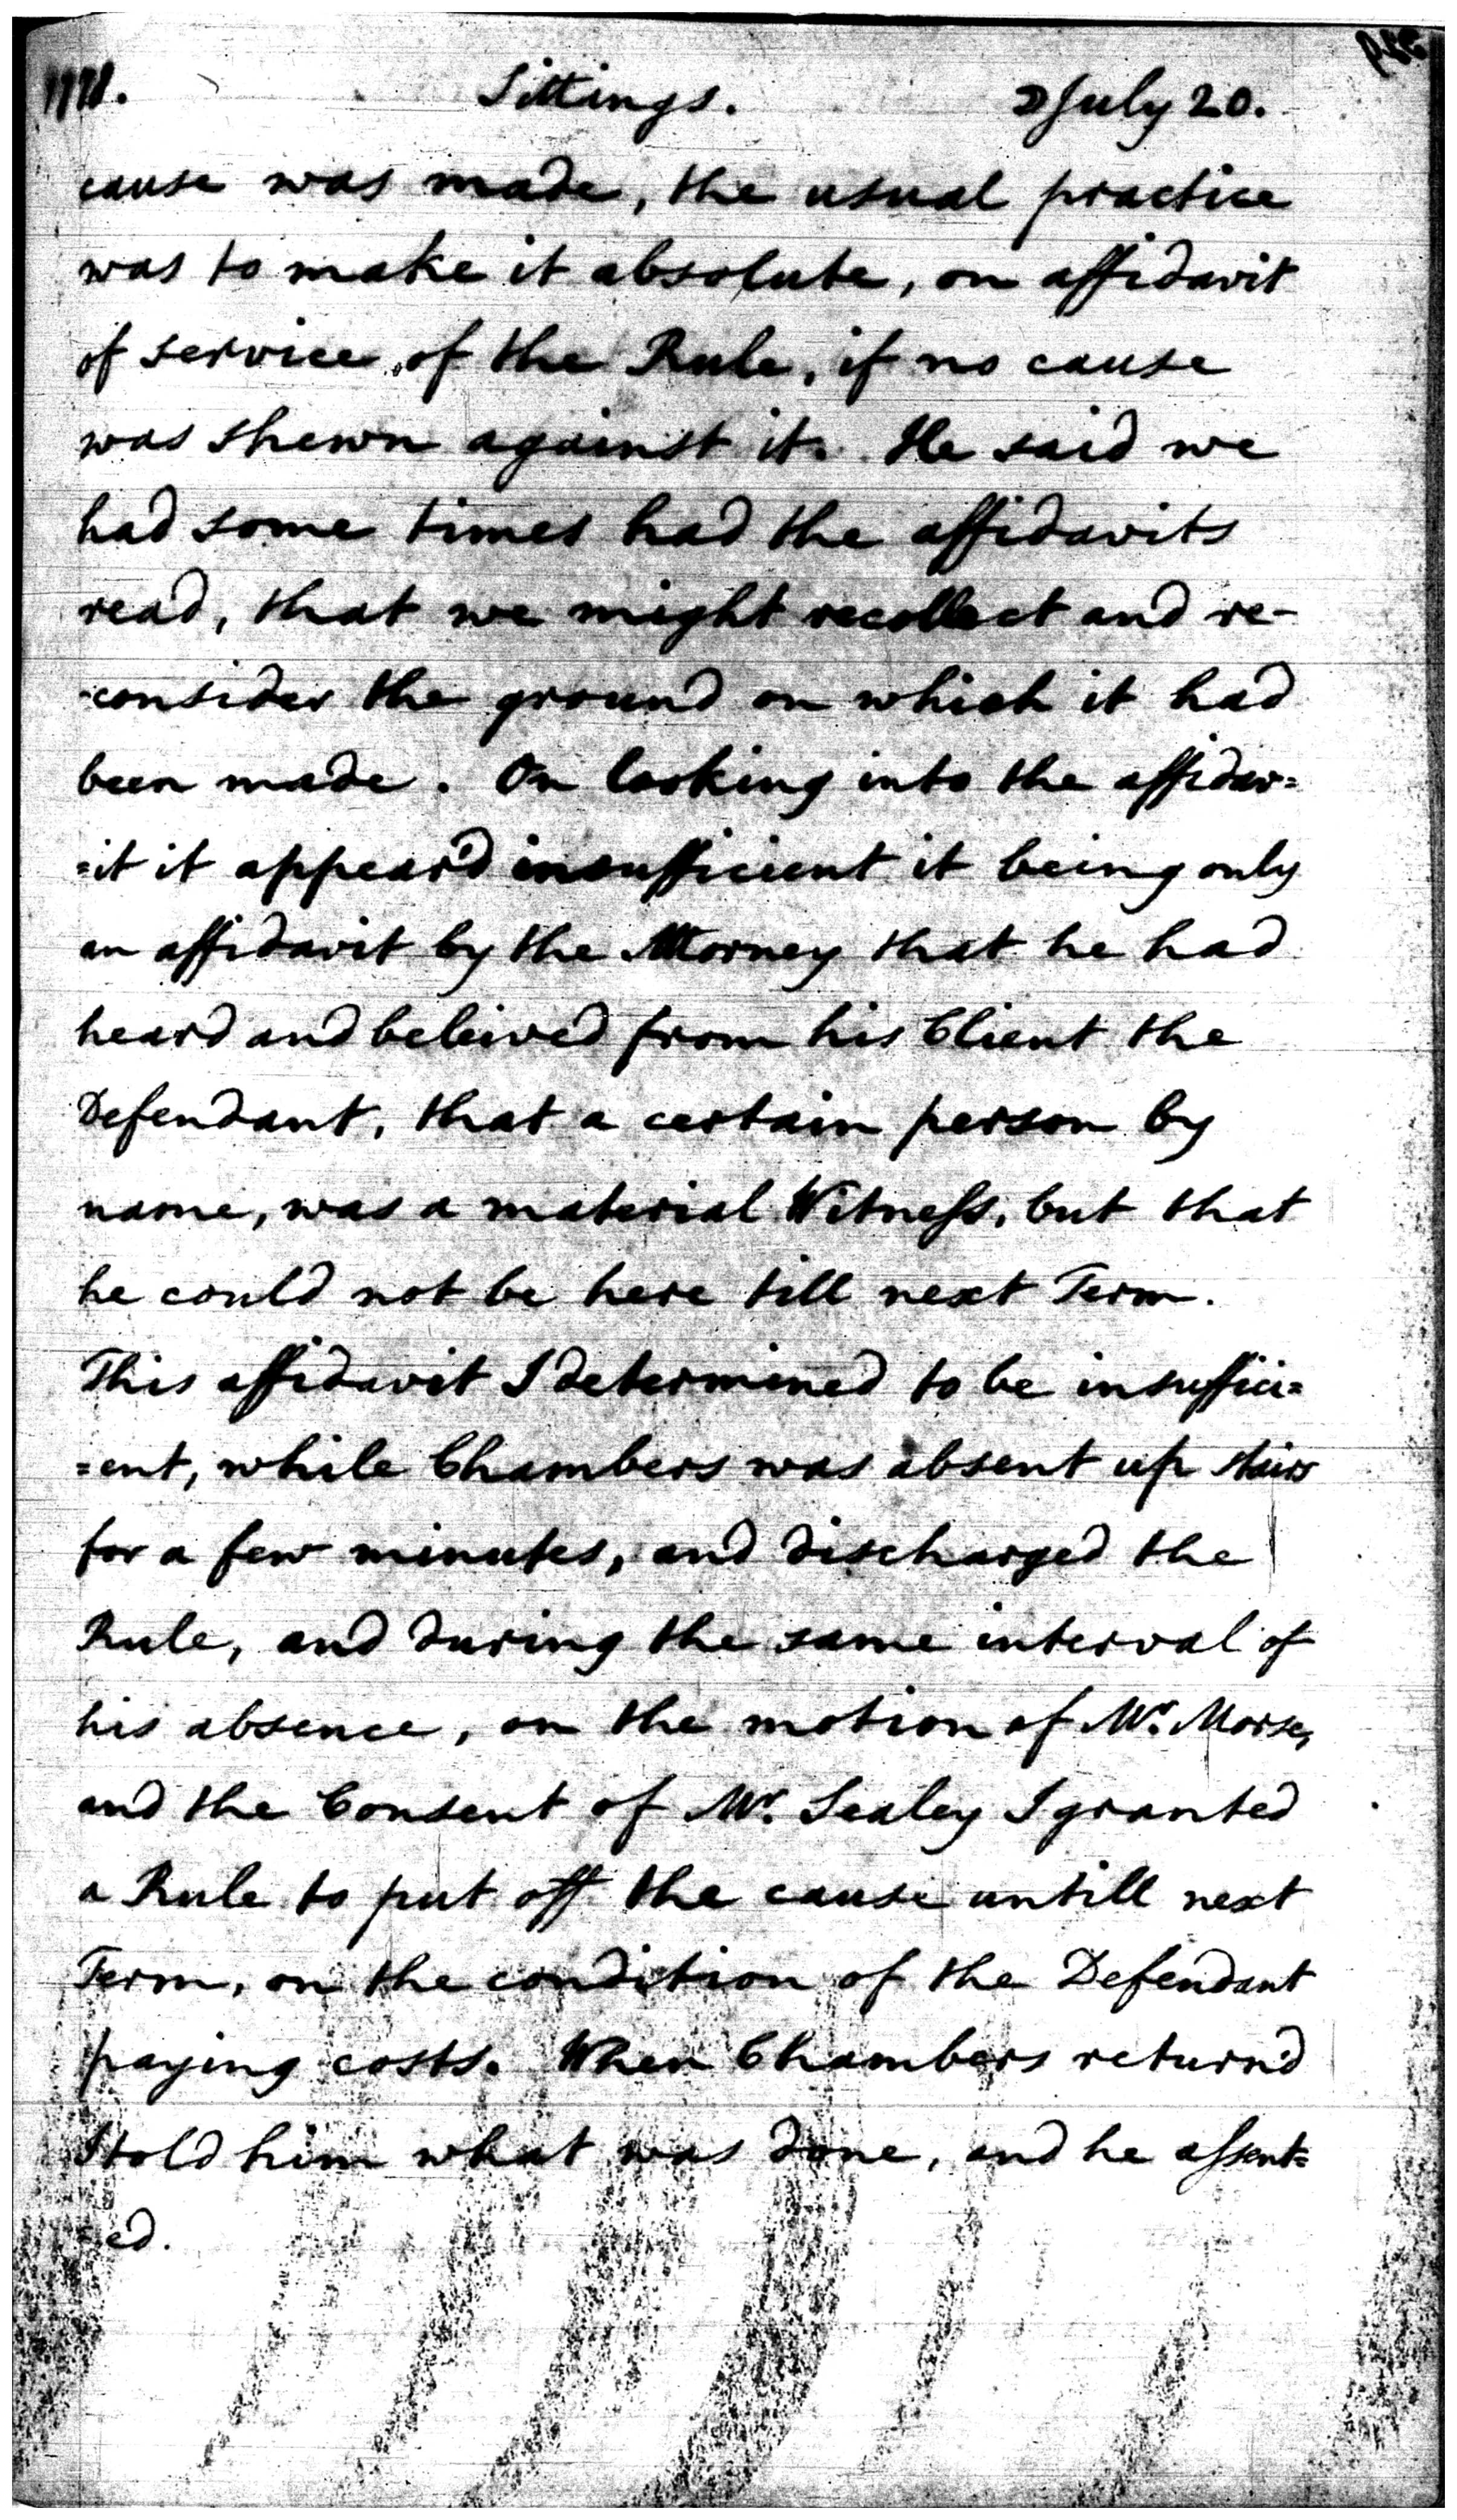 1778. Sittings. ☽ July 20.
cause was made, the usual practice
was to make it absolute, on affidavit
of service of the Rule, if no cause
was shewn against it. He said we
had some times had the affidavits
read, that we might recollect and re-
-consider the ground on which it had
been made. On looking into the affidav=
=it it appear'd insufficient it being only
an affidavit by the Attorney that he had
heard and beleived from his Client the
Defendant, that a certain person by
name, was a material Witneſs, but that
he could not be here till next Term.
This affidavit I determined to be insuffici=
=ent, while Chambers was absent up stairs
for a few minutes, and discharged the
Rule, and during the same interval of
his absence, on the motion of Mr. Morse,
and the Consent of Mr. Sealey I granted
a Rule to put off the cause untill next
Term, on the condition of the Defendant
paying costs. When Chambers return'd
I told him what was done, and he aſsent=
=ed.